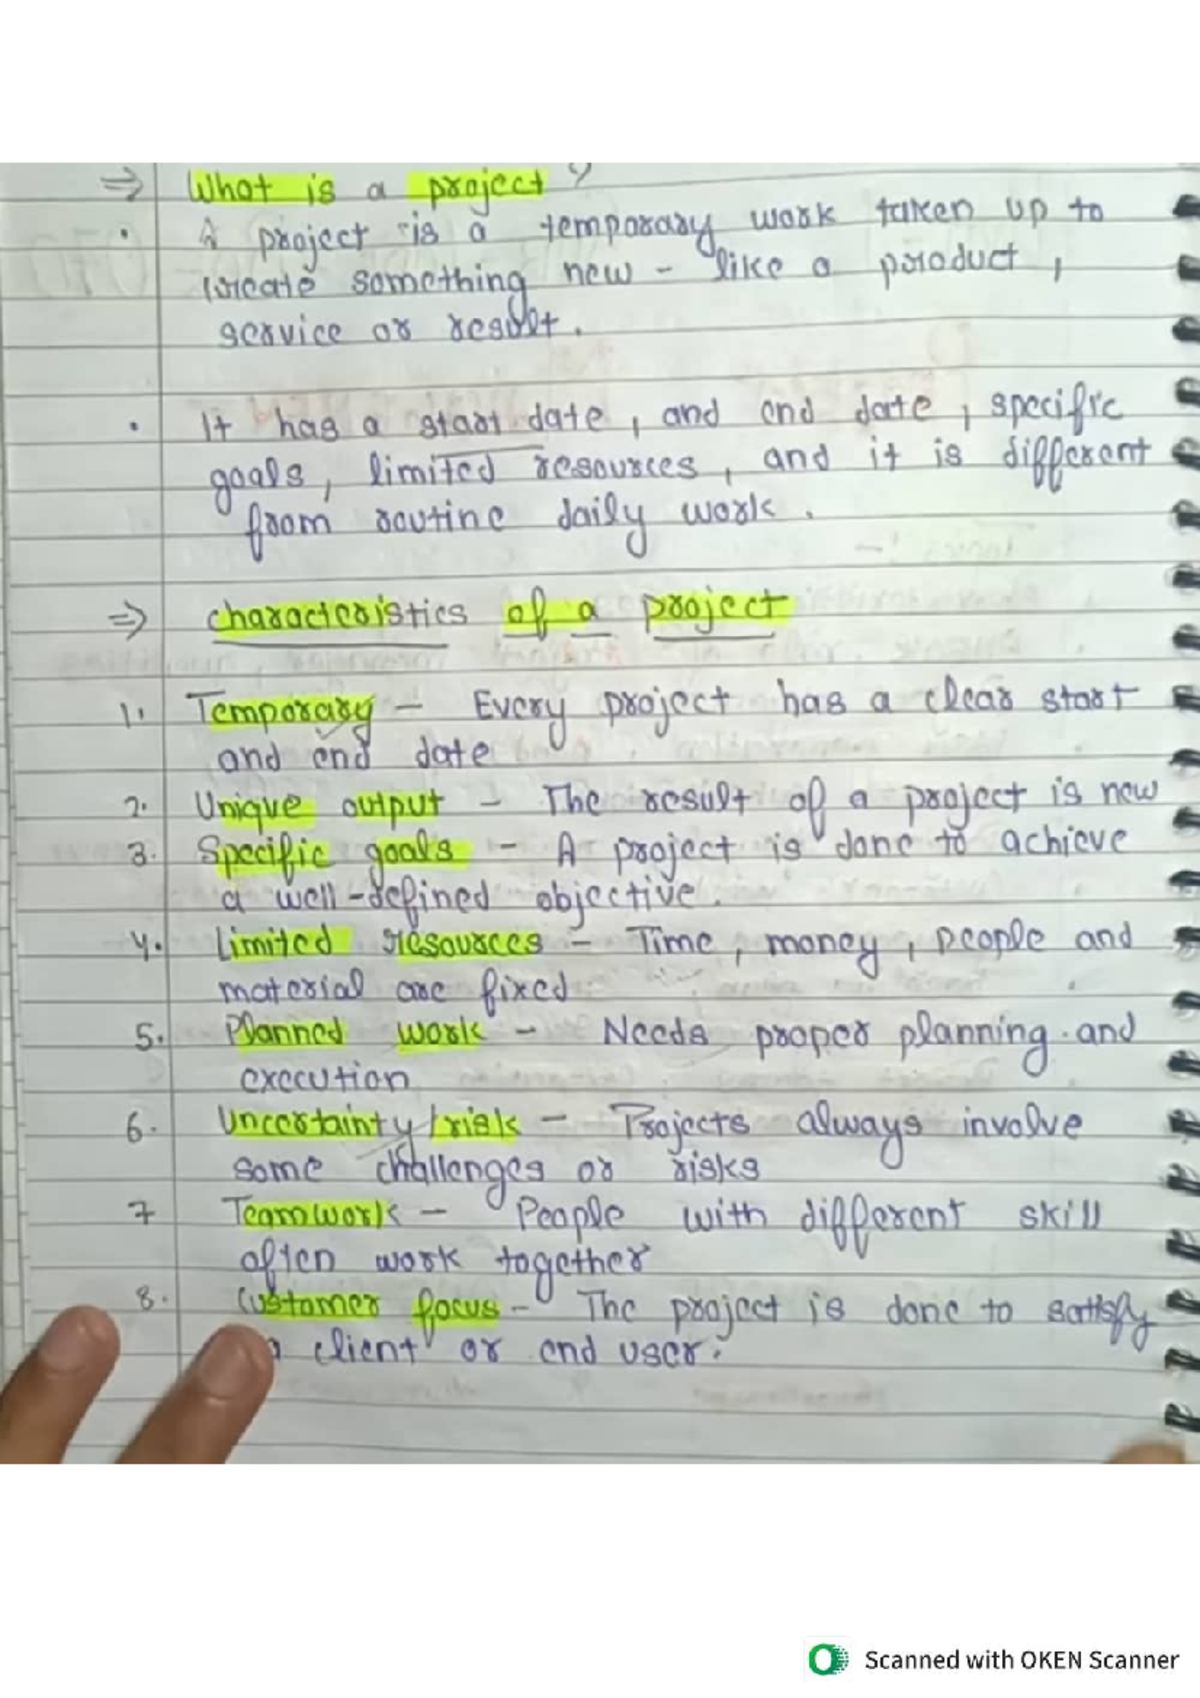 ⇒ What is a project ?
• A project is a temporary work taken up to
create something new - like a product ,
service or result .
• It has a start date , and end date , specific
goals , limited resources , and it is different
from routine daily work .
⇒ characteristics of a project
1. Temporary - Every project has a clear start
and end date
2. Unique output - The result of a project is new
3. Specific goals - A project is done to achieve
a well-defined objective .
4. Limited resources - Time , money , people and
material are fixed
5. Planned work - Needs proper planning and
execution
6. Uncertainty / risk - Projects always involve
some challenges or risks
7 Teamwork - People with different skill
often work together
8. Customer focus - The project is done to satisfy
a client or end user .
Scanned with OKEN Scanner